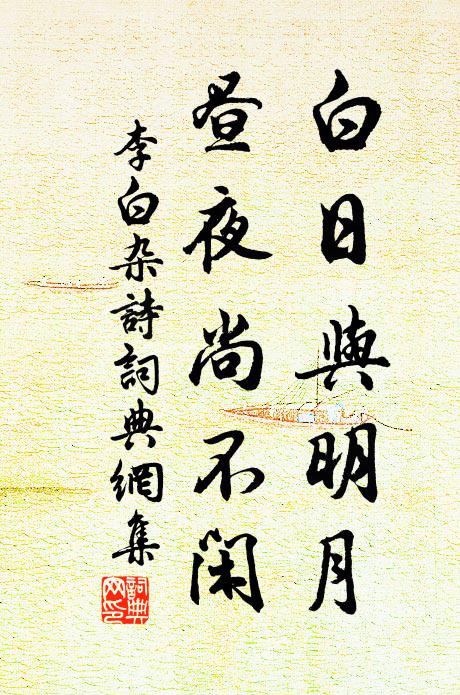 白日與明月
晝夜尚不閑
李白杂詩詞典網集
詞典
网印